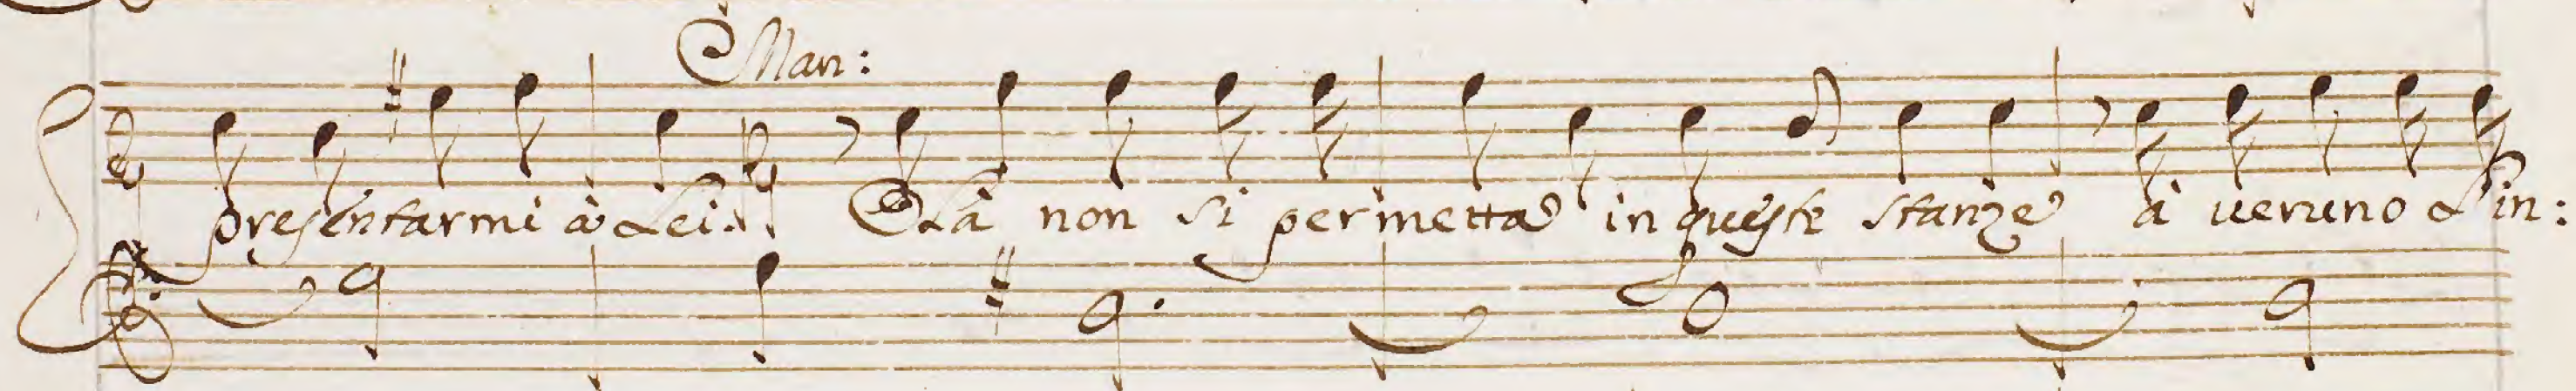 Man:
presentarmi à Lei. Olà non si permetta in queste stanze à veruno L'in: